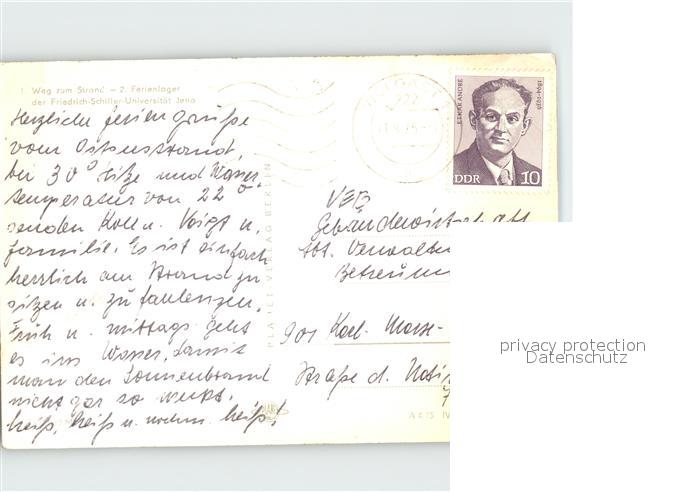 1. Weg zum Strand – 2. Ferienlager
der Friedrich-Schiller-Universität Jena
Herzliche Feriengrüße
vom Ostseestrand,
bei 30° Hitze und Wasser-
temperatur von 22°
senden Kolln. Voigt u.
Familie. Es ist einfach
herrlich am Strand zu
sitzen u. zu faulenzen.
Früh u. mittags geht
es ins Wasser, damit
man den Sonnenbrand
nicht gar so merkt.
heiß, heiß u. nochm. heiß!
PLANET-VERLAG BERLIN
222
ETKAR ANDRÉ
1894-1936
DDR 10
VEB
Gebäudewirtschaft
Abt. Verwaltu
Betreuun
901 Karl-Marx-
Straße d. Nati
privacy protection
Datenschutz